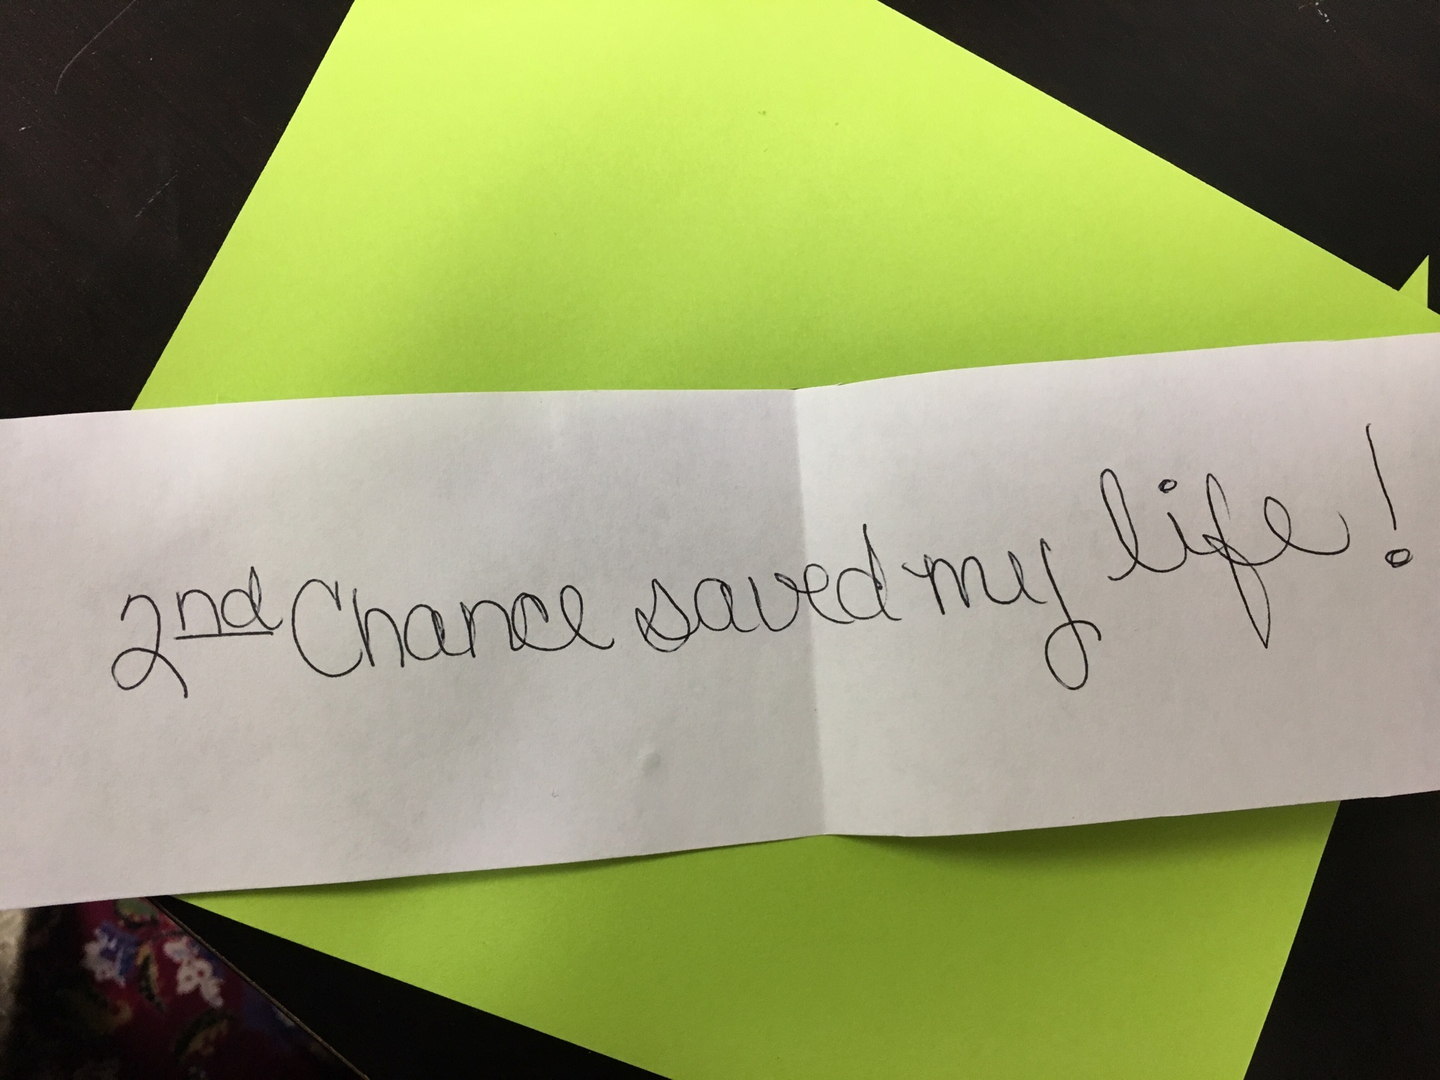 2nd Chance saved my life!